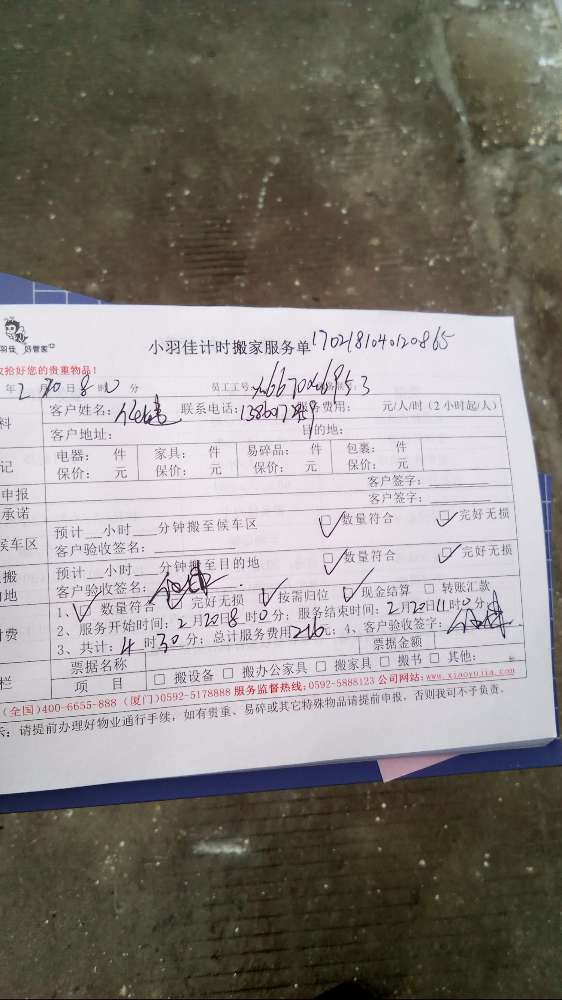 羽佳 好管家
小羽佳计时搬家服务单 1702181040120865
收拾好您的贵重物品！
年 2 月 20 日 8 时 0 分 员工工号：
料 客户姓名： 联系电话： 服务费用： 元/人/时（2小时起/人）
客户地址： 目的地：
记 电器： 件 家具： 件 易碎品： 件 包裹： 件
保价： 元 保价： 元 保价： 元 保价： 元
申报 客户签字：
承诺 客户签字：
候车区 预计__小时__分钟搬至候车区 数量符合 完好无损
客户验收签名：
搬 预计__小时__分钟搬至目的地 数量符合 完好无损
地 客户验收签名：
1、 数量符合 完好无损 按需归位 现金结算 转账汇款
付费 2、服务开始时间：2月20日8时0分；服务结束时间：2月20日11时0分
3、共计：4时30分；总计服务费用216元；4、客户验收签字：
栏 票据名称 票据金额
项 目 搬设备 搬办公家具 搬家具 搬书 其他：
(全国)400-6655-888 (厦门)0592-5178888 服务监督热线：0592-5888123 公司网站：www.xiaoyujia.com
示：请提前办理好物业通行手续，如有贵重、易碎或其它特殊物品请提前申报，否则我司不予负责。